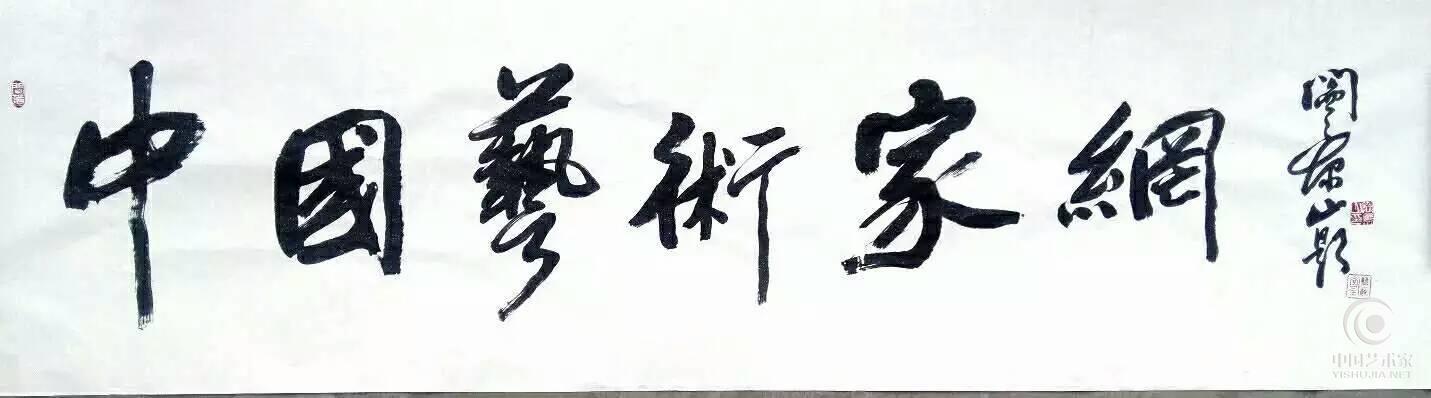 中國藝術家網
山題
中国艺术家
YISHUJIA.NET